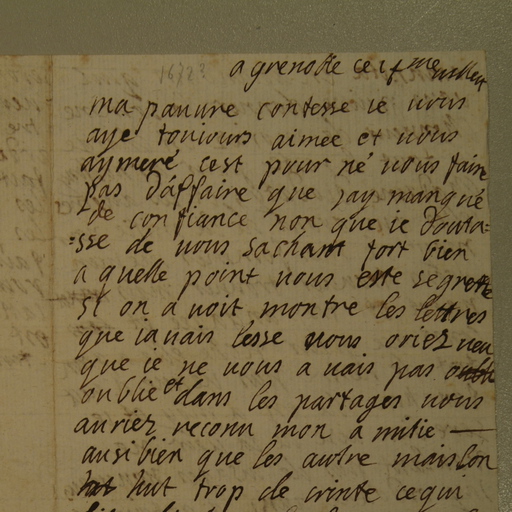 1672?
a grenoble ce 1f me Juillett
ma pauure contesse ie uous
aye touiours aimee et uous
aymeré cest pour né uous faire
pas d'affaire que jay manqué
de confiance non que ie douta=
=sse de uous sachant fort bien
a quelle point uous este segrette
si on a uoit montre les lettres
que iauais lesse uous oriez ueu
que ie ne uous a uais pas
oublie et dans les partages uous
auriez reconu mon a mitie —
ausi bien que les autre mais lon
hut trop de crinte ce qui